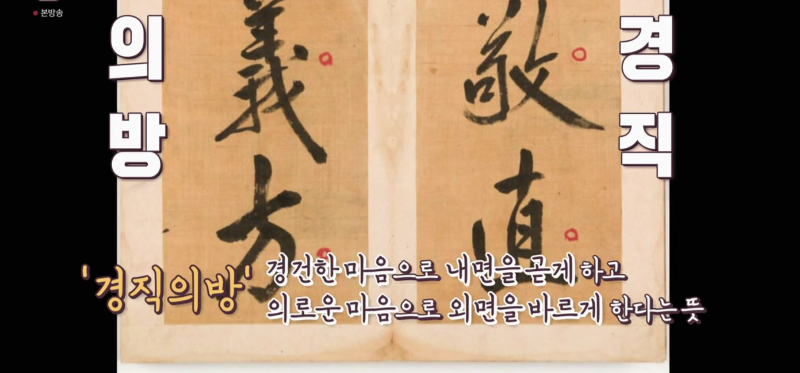 본방송
경직
의방
敬直
義方
'경직의방'
경건한 마음으로 내면을 곧게 하고
의로운 마음으로 외면을 바르게 한다는 뜻